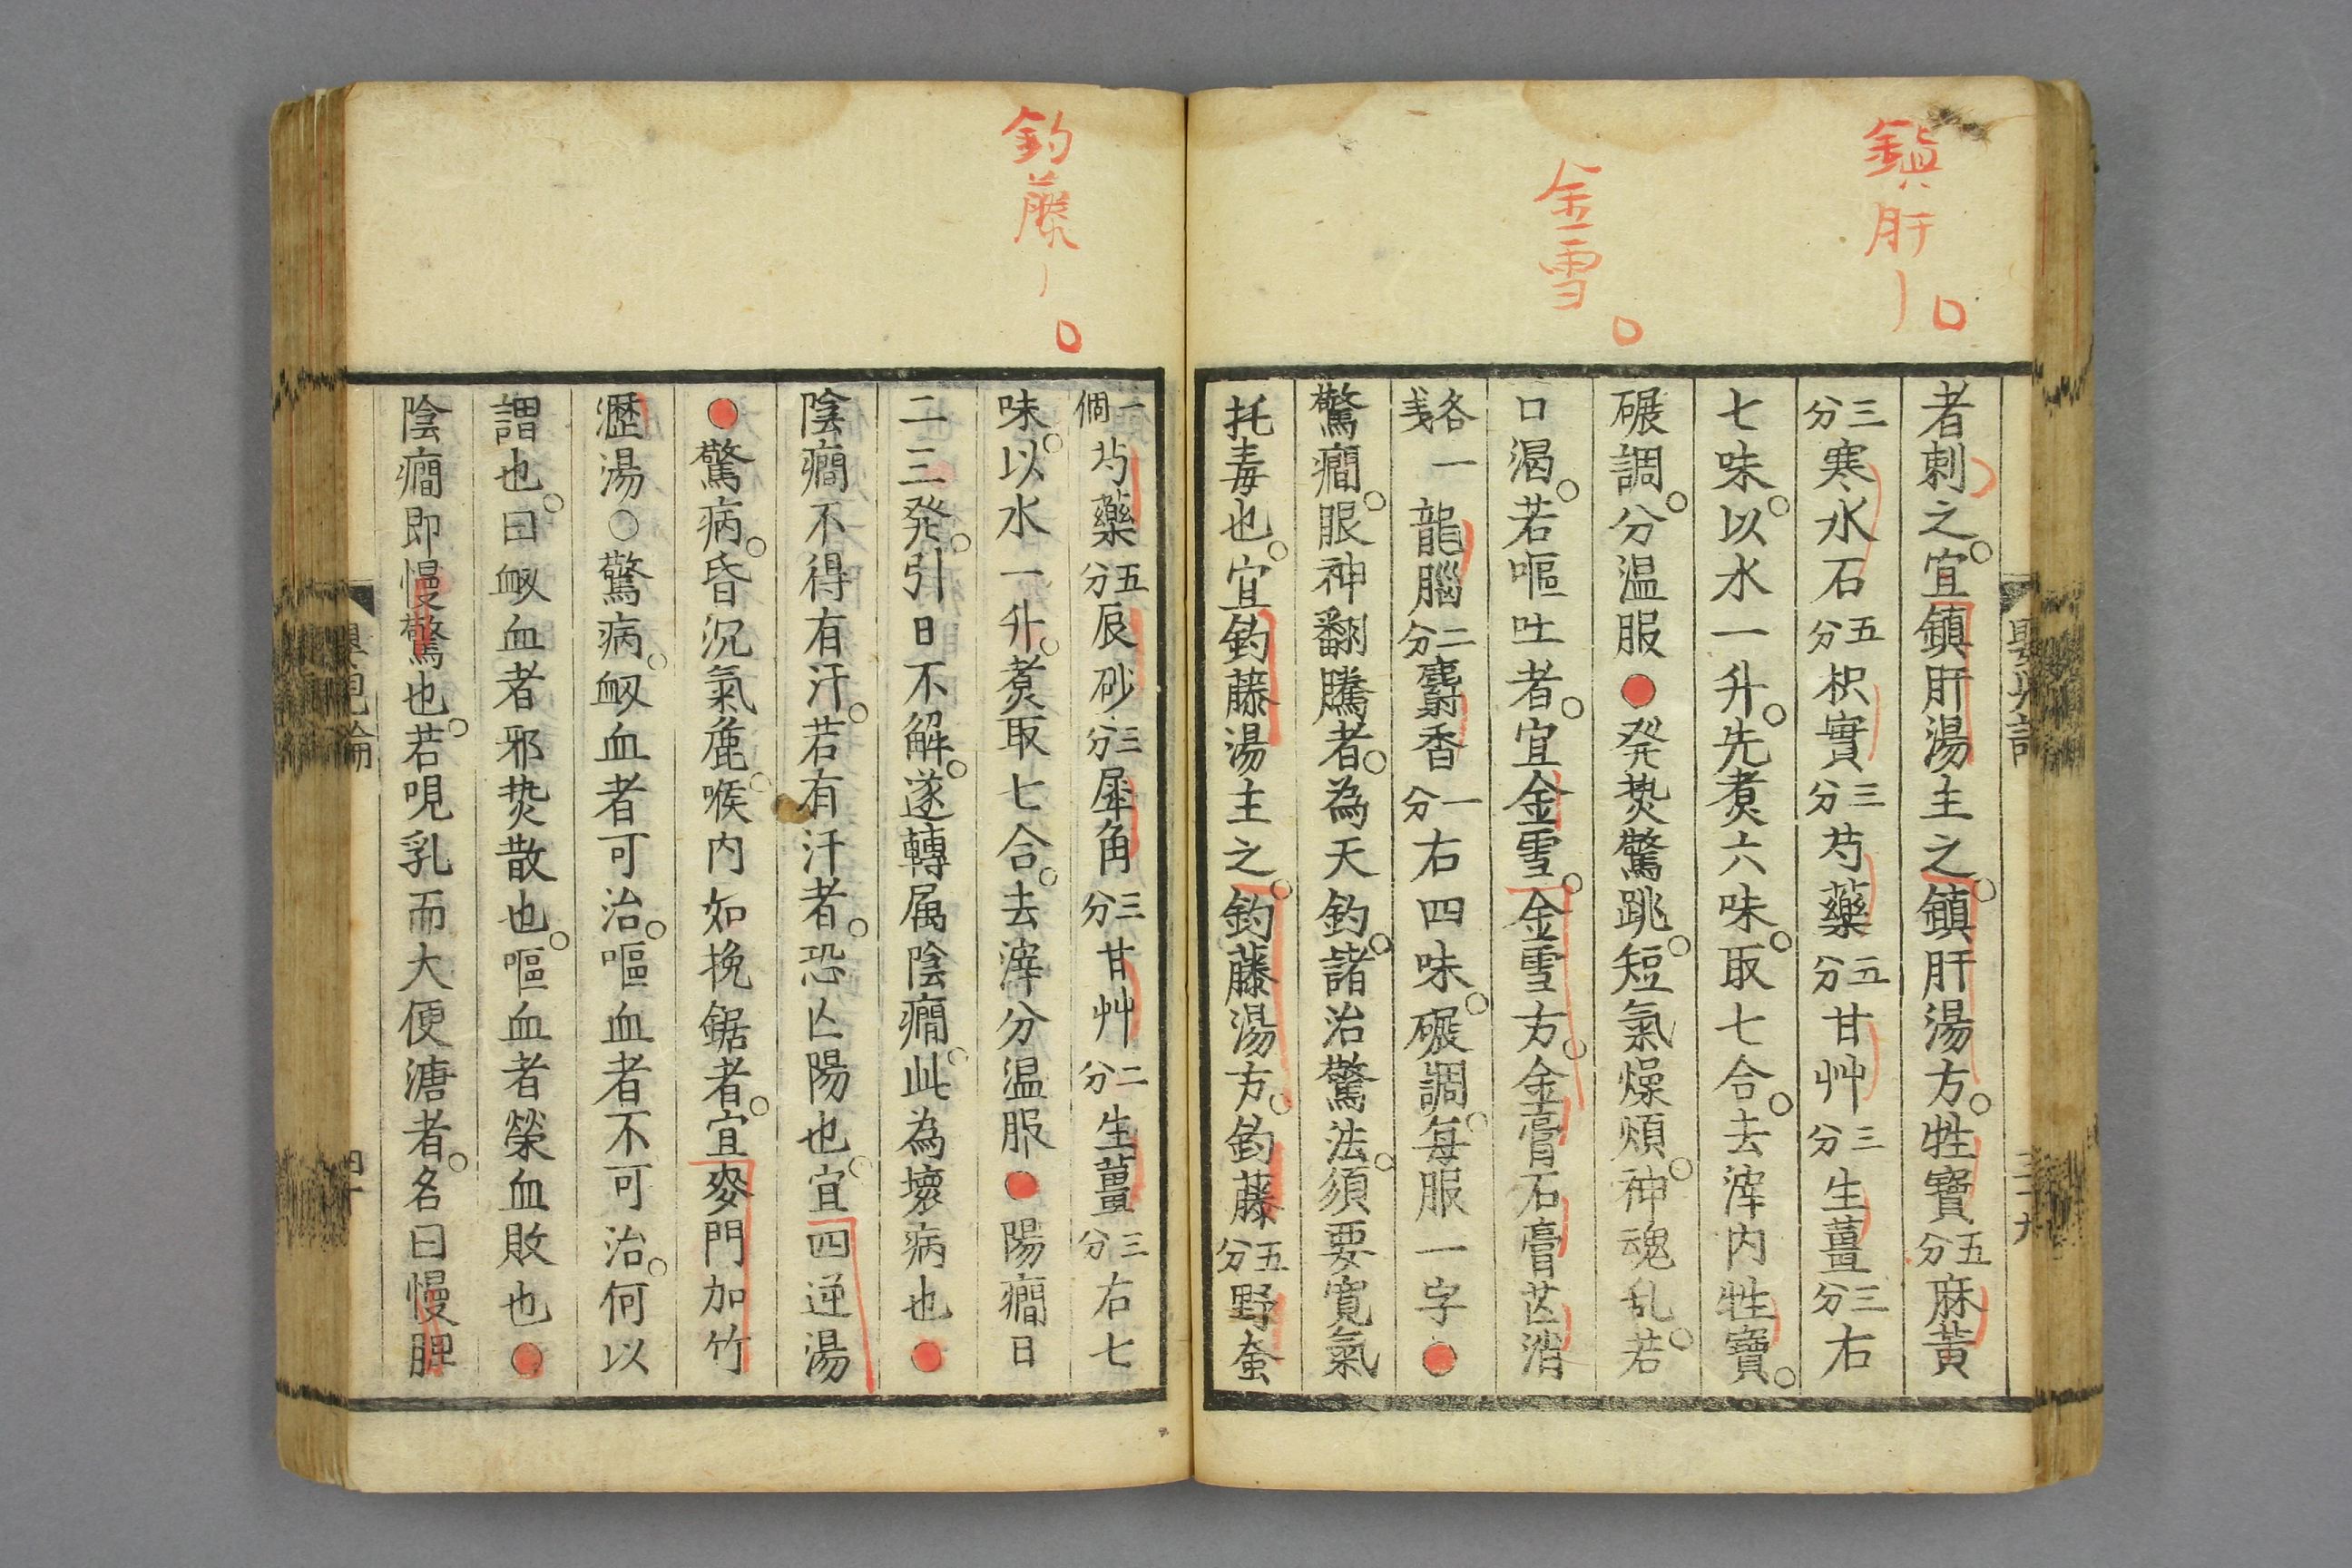 鎮肝
金雪
者刺之宜鎮肝湯主之鎮肝湯方牲寶五分麻黃
三分寒水石五分枳實三分芍藥五分甘艸三分生薑三分右
七味以水一升先煮六味取七合去滓内牲寶
碾調分温服●発𤍠驚跳短氣燥煩神魂乱若
口渴若嘔吐者宜金雪金雪方金膏石膏芒消
各一戔龍腦二分麝香一分右四味碾調每服一字●
驚癇眼神翻騰者為天釣諸治驚法須要寬氣
托毒也宜釣藤湯主之釣藤湯方釣藤五分野蚕
釣藤
一個芍藥五分辰砂三分犀角三分甘艸二分生薑三分右七
味以水一升煮取七合去滓分温服●陽癇日
二三発引日不解遂轉属陰癇此為壞病也●
陰癇不得有汗若有汗者恐亾陽也宜四逆湯
●驚病昏沉氣麁喉内如挽鋸者宜麥門加竹
瀝湯○驚病衂血者可治嘔血者不可治何以
謂也曰衂血者邪𤍠散也嘔血者榮血敗也●
陰癇即慢驚也若哯乳而大便溏者名曰慢脾